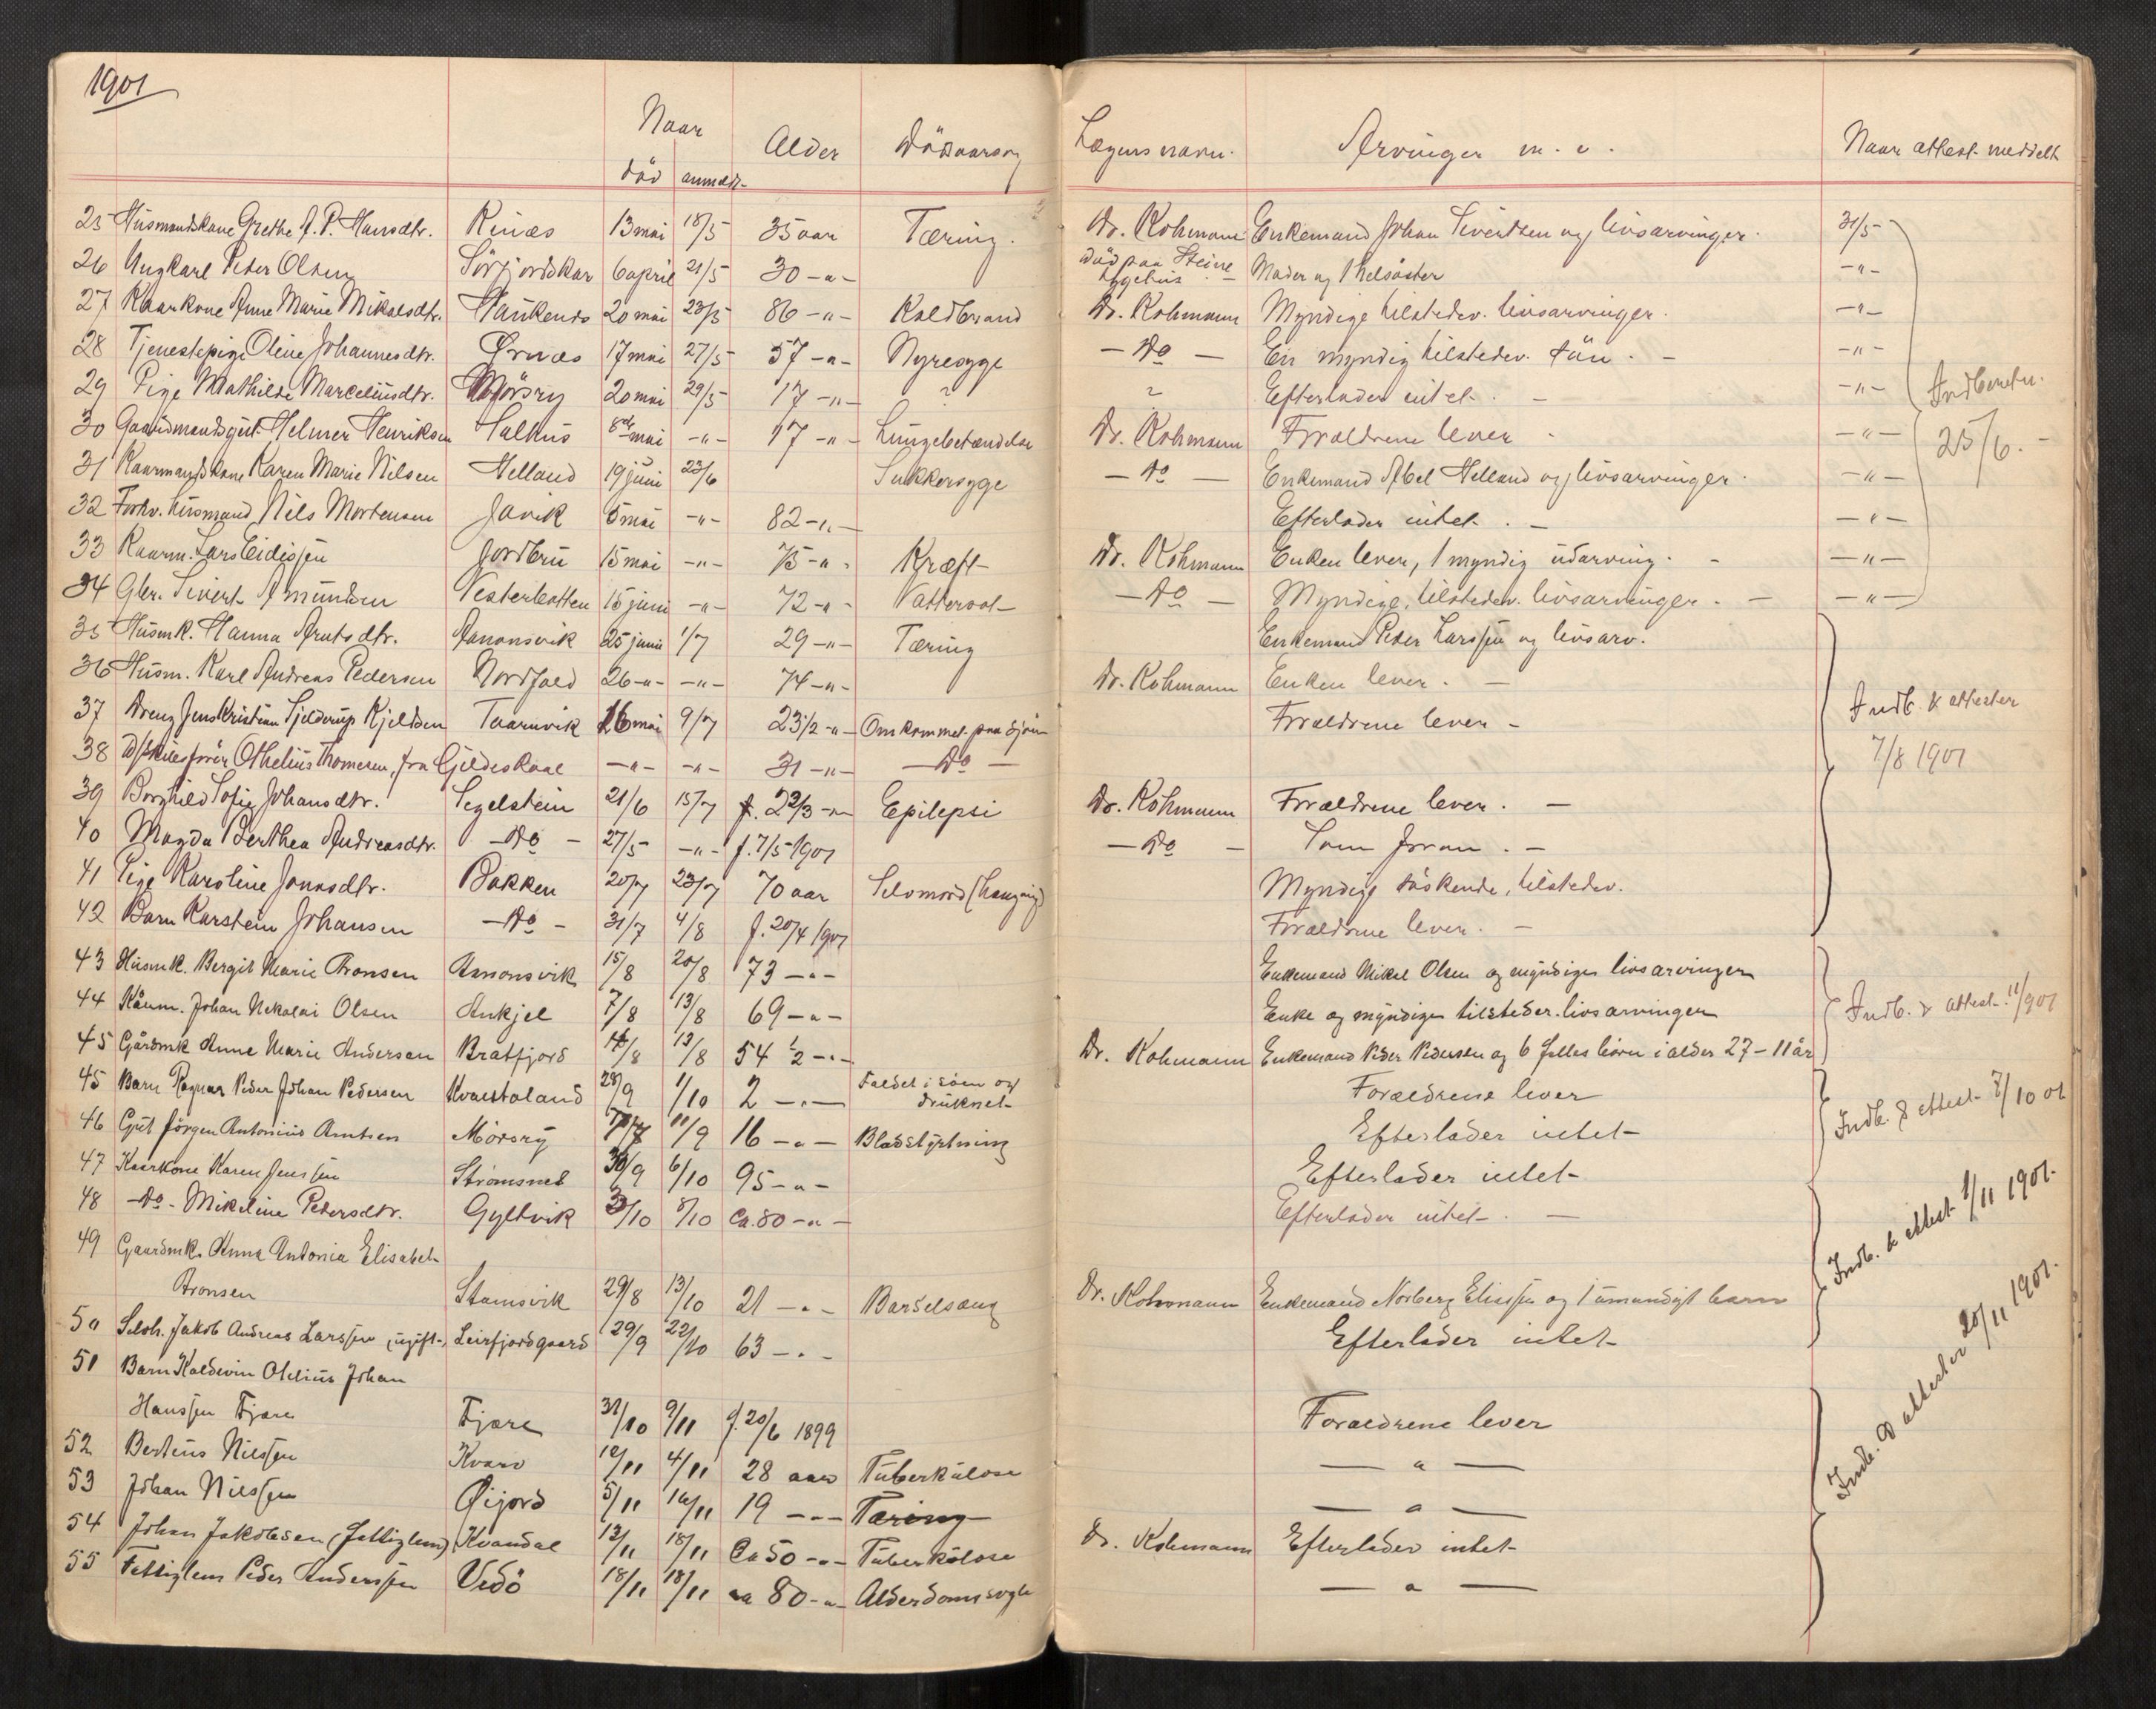 1901
Naar
död anmeldt Alder Dödsaarsag Lægens navn. Arvinger m. v. Naar attest meddelt
25 Husmandskone Grethe A. P. Hansdtr. Rinæs 13 mai 18/5 35 aar Tæring. Dr. Kohmann Enkemand Johan Sivertsen og livsarvinger. 31/5
26 Ungkarl Peder Olsen Sörfjordskar 6 april 21/5 30 -"- Död paa Steine sygehus Moder og 1 helsöster -"-
27 Kaarkone Anne Marie Mikalsdtr. Haukenes 20 mai 23/5 86 -"- Koldbrand Dr. Kohmann Myndige tilstedev. livsarvinger. -"-
28 Tjenestepige Oline Johannesdtr. Ørnæs 17 mai 27/5 57 -"- Nyresyge - Do - En myndig tilstedev. sön. - -"-
29 Pige Mathilde Marceliusdtr. Mörsry 20 mai 29/5 17 -"- ? ? Efterlader intet. - -"-
30 Gaardmandsgut Helmer Henriksen Salhus 8de mai -"- 17 -"- Lungebetændelse Dr. Kohmann Forældrene lever - -"-
Indberetn. 25/6. -
31 Kaarmandskone Karen Marie Nilsen Helland 19 juni 23/6 Sukkersyge - Do - Enkemand Abel Helland og livsarvinger. -"-
32 Forhv. husmand Nils Mortensen Javik 5 mai -"- 82 -"- Efterlader intet. - -"-
33 Kaarm. Lars Eidissen Jordbru 15 mai -"- 75 -"- Kræft Dr. Kohmann Enken lever, 1 myndig udarving. - -"-
34 Gbr. Sivert Amundsen Vesterbotten 15 juni -"- 72 -"- Vattersot - Do - Myndige, tilstedev. livsarvinger. - -"-
35 Husmk. Hanna Arntsdtr. Aanonsvik 25 juni 1/7 29 -"- Tæring Enkemand Peder Larssen og livsarv.
36 Husm. Karl Andreas Pedersen Nordfold 26 -"- -"- 74 -"- Dr. Kohmann Enken lever. -
37 Dreng Jens Kristian Tjelderup Kjeldsen Taarnvik 16 mai 9/7 23 1/2 -"- Omkommet paa sjöen Forældrene lever -
Indb. & attester 7/8 1901
38 D/Skibsförer Othelius Thomesen, fra Gildeskaal -"- -"- 31 -"- - Do -
39 Borghild Sofie Johansdtr. Segelstein 21/6 15/7 f. 2 2/3 -"- Epilepsi Dr. Kohmann Forældrene lever. -
40 Magda Berthea Andreasdtr. - Do - 27/5 -"- f. 7/5 1901 - Do - Som foran. -
41 Pige Karoline Jonasdtr. Bakken 20/7 23/7 70 aar Selvmord (hængning) Myndige söskende, tilstedev.
42 Barn Karstein Johansen - Do - 31/7 4/8 f. 20/4 1901 Forældrene lever. -
43 Husmk. Bergit Marie Aronsen Aanonsvik 15/8 20/8 73 -"- Enkemand Mikel Olsen og myndige livsarvinger
44 Kaarm. Johan Nekolai Olsen Ankjel 7/8 13/8 69 -"- Enke og myndige tilsteder. livsarvinger
Indb. & attest. 11/901
45 Gårdmk Anne Marie Andersen Bratfjord 14/8 13/8 54 1/2 -"- Dr. Kohmann Enkemand Peder Pedersen og 6 felles börn i alder 27 - 11 år
45 Barn Ragnar Peder Johan Pedersen Kvæstoland 28/9 1/10 2 -"- Faldet i söen og druknet Forældrene lever
46 Gut Jörgen Antonius Arntsen Mörsry 7/7 11/9 16 -"- Blodstyrtning Efterlader intet
Indb. & attest 7/10 01
47 Kaarkone Karen Jenssen Strömsnes 30/9 6/10 95 -"- Efterlader intet
48 - Do - Mikeline Pedersdtr. Gyltvik 3/10 8/10 Ca. 80 -"- Efterlader intet. -
49 Gaardmk. Anna Antonia Elisabet
Aronsen Stamsvik 29/8 13/10 21 -"- Barselseng Dr. Kohmann Enkemand Norberg Eliassen og 1 umyndigt barn
Indb. & attest 1/11 1901.
50 Selvh. Jakob Andreas Larssen, ugift, Leirfjordgaard 29/9 22/10 63 -"- Efterlader intet
51 Barn Kaldevin Otelius Johan
Hanssen Fjære Fjære 31/10 9/11 f. 20/6 1899 Forældrene lever
52 Bertius Nilssen Kvarv 10/11 4/11 28 aar Tuberkulose - " -
Indb. & attester 20/11 1901.
53 Johan Nilssen Öijord 5/11 16/11 19 -"- Tæring - " -
54 Johan Jakobsen (fattiglem) Kvandal 13/11 18/11 Ca 50 -"- Tuberkulose Dr. Kohmann Efterlader intet
55 Fattiglem Peder Anderssen Vedö 18/11 18/11 ca 80 -"- Alderdomssvagh - " -